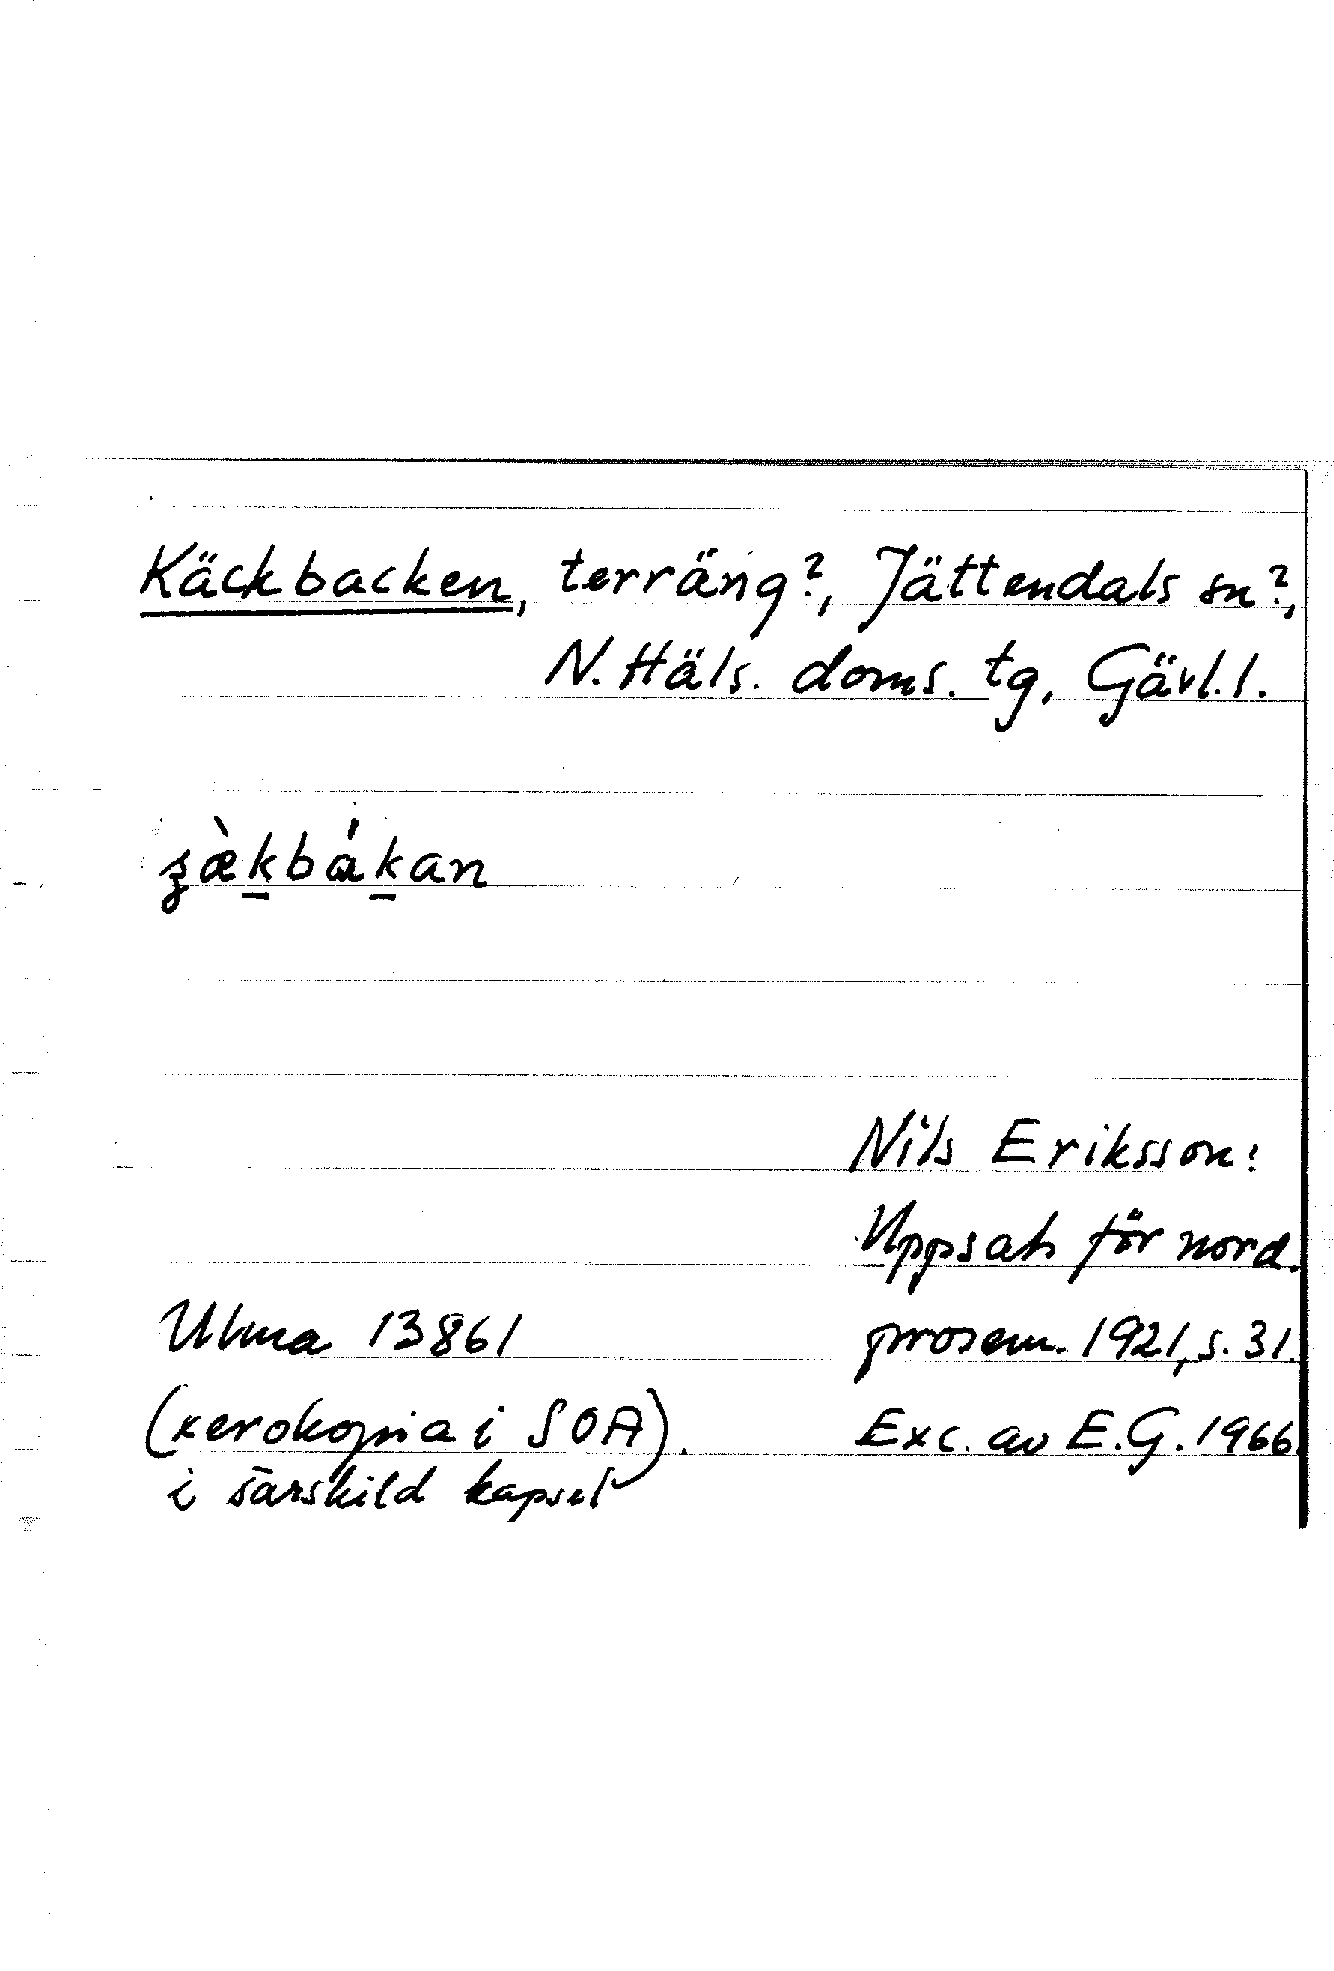 Käckbacken, terräng?, Jättendals sn?,
N. Häls. doms. tg, Gävl. l.
ʂæ̀k̲bák̲an
Nils Eriksson:
Uppsats för nord.
Ulma 13861 prosem. 1921, s. 31.
(xerokopia i SOA). Exc. av E.G. 1966.
i särskild kapsel